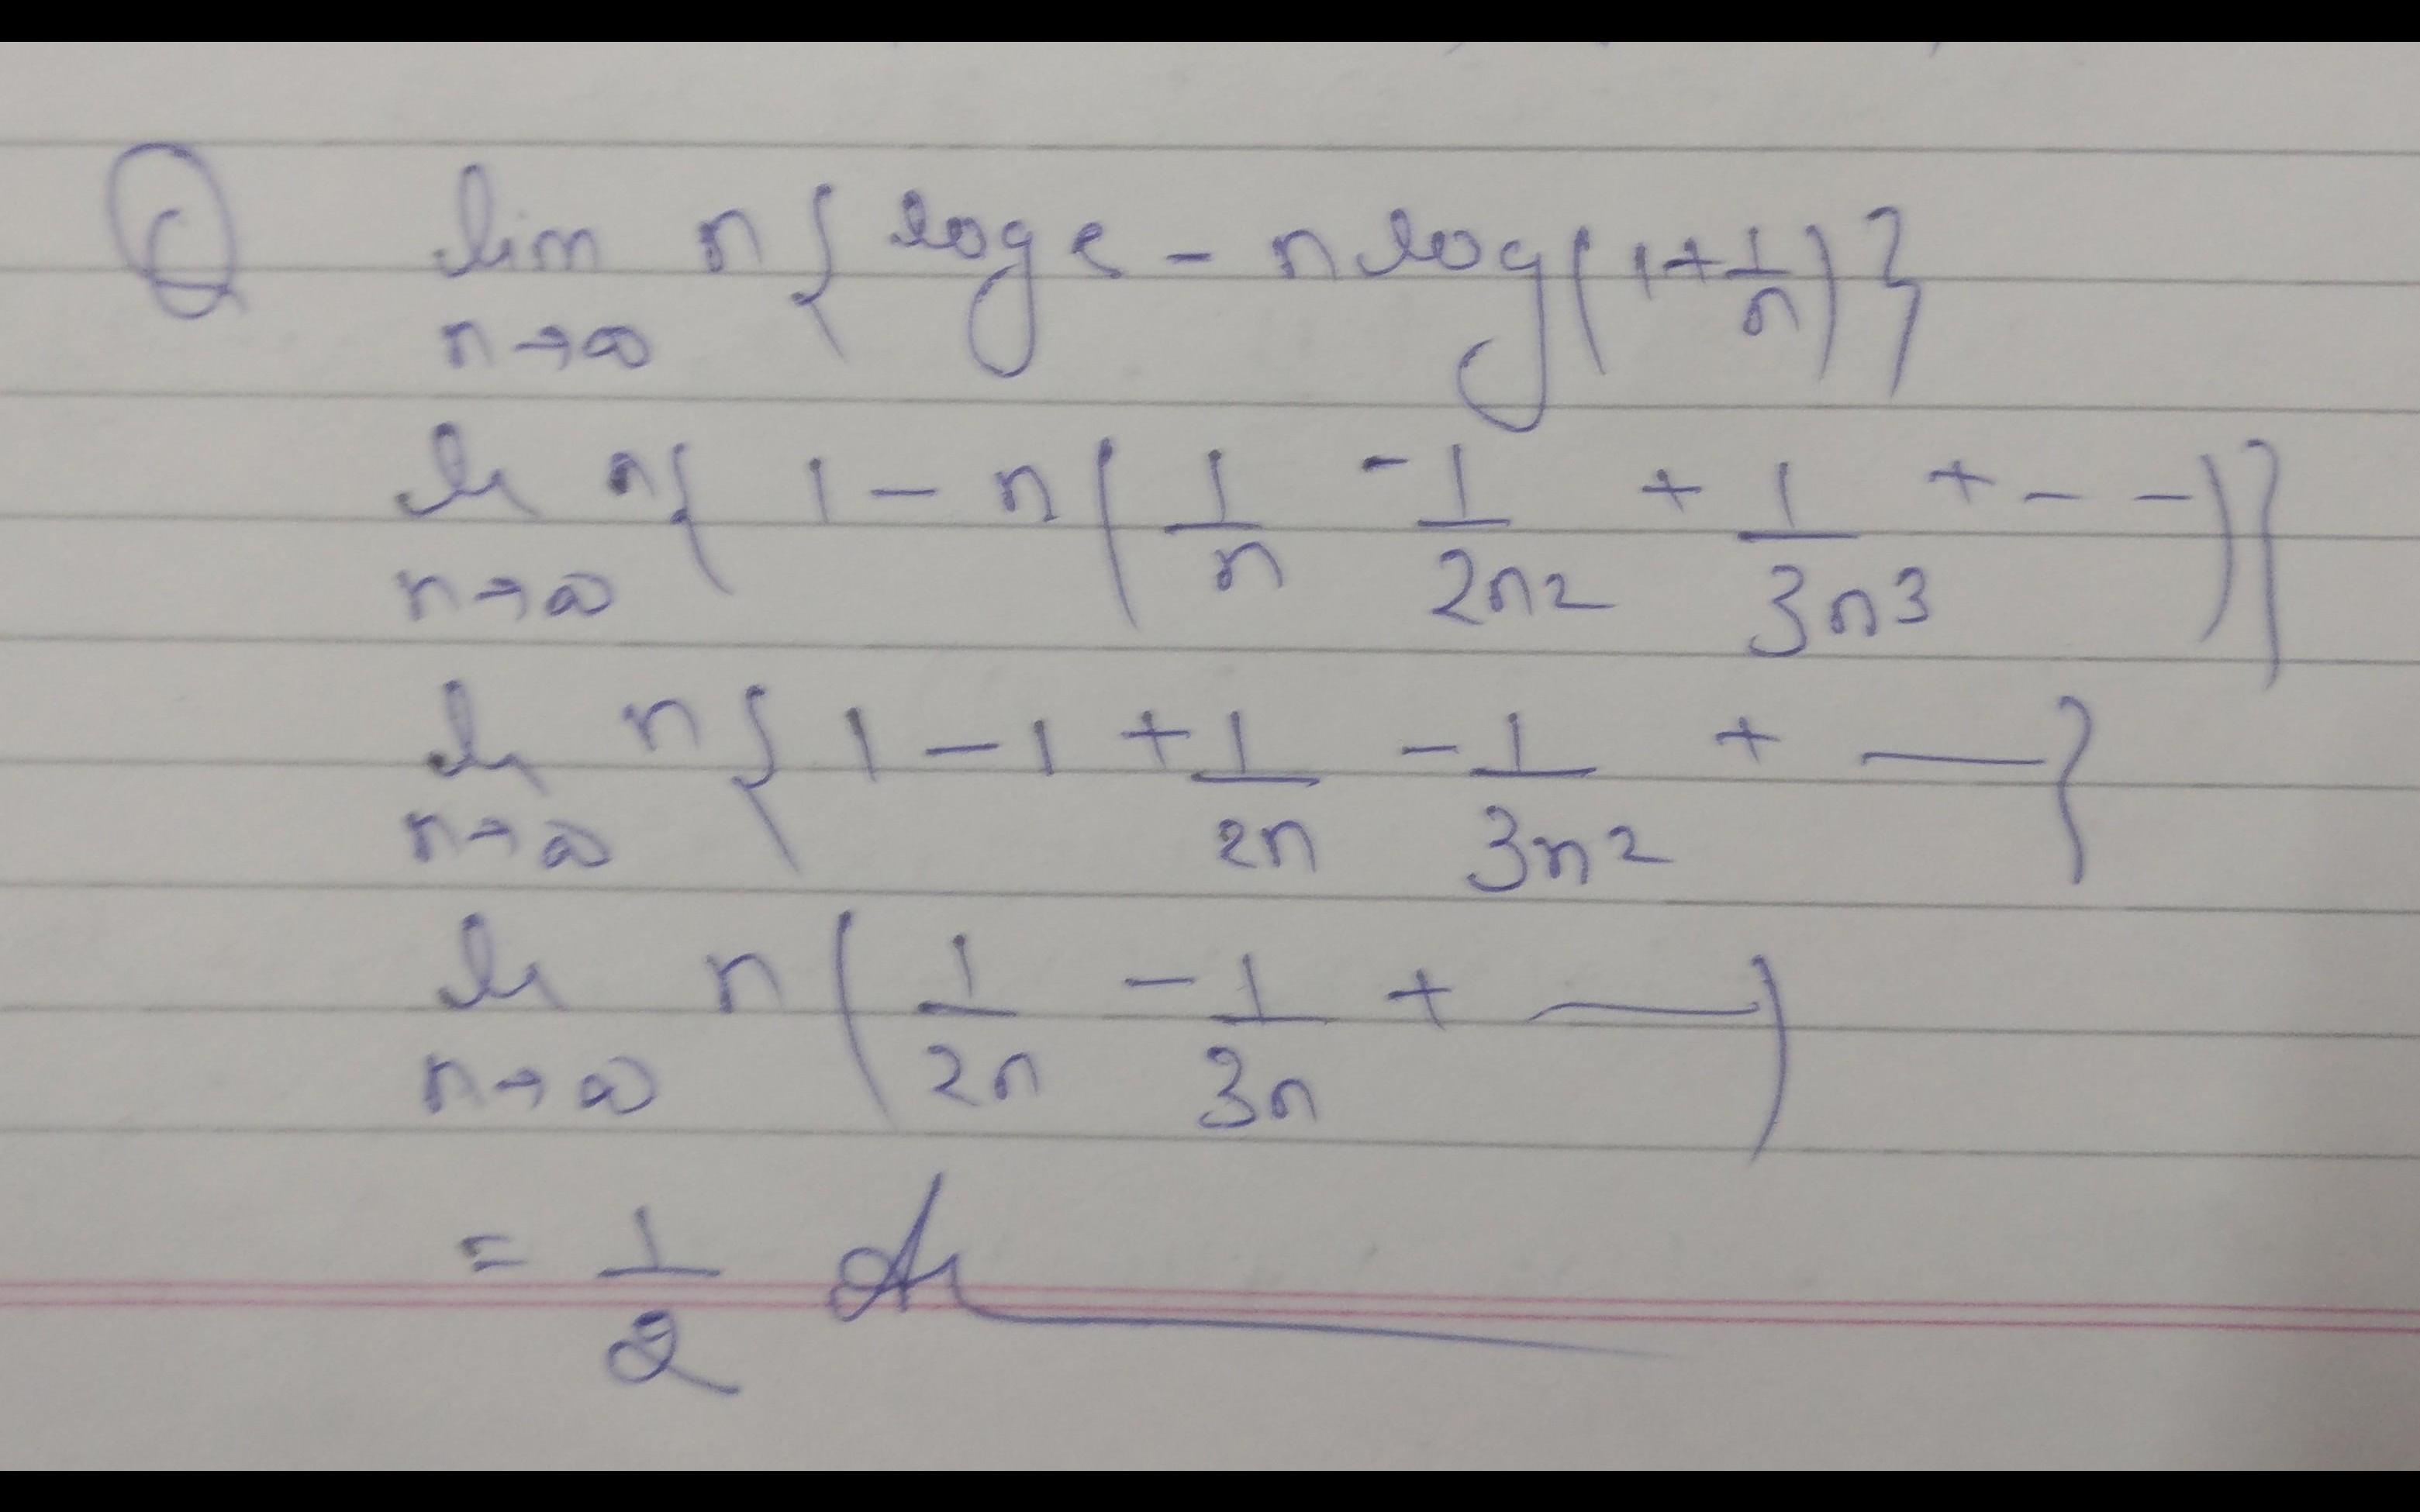 Q lim n→∞ n{ log e - n log(1 + 1/n) }
lim n→∞ n{ 1 - n( 1/n - 1/2n² + 1/3n³ + - - ) }
lim n→∞ n{ 1 - 1 + 1/2n - 1/3n² + — }
lim n→∞ n( 1/2n - 1/3n + — )
= 1/2 Ans